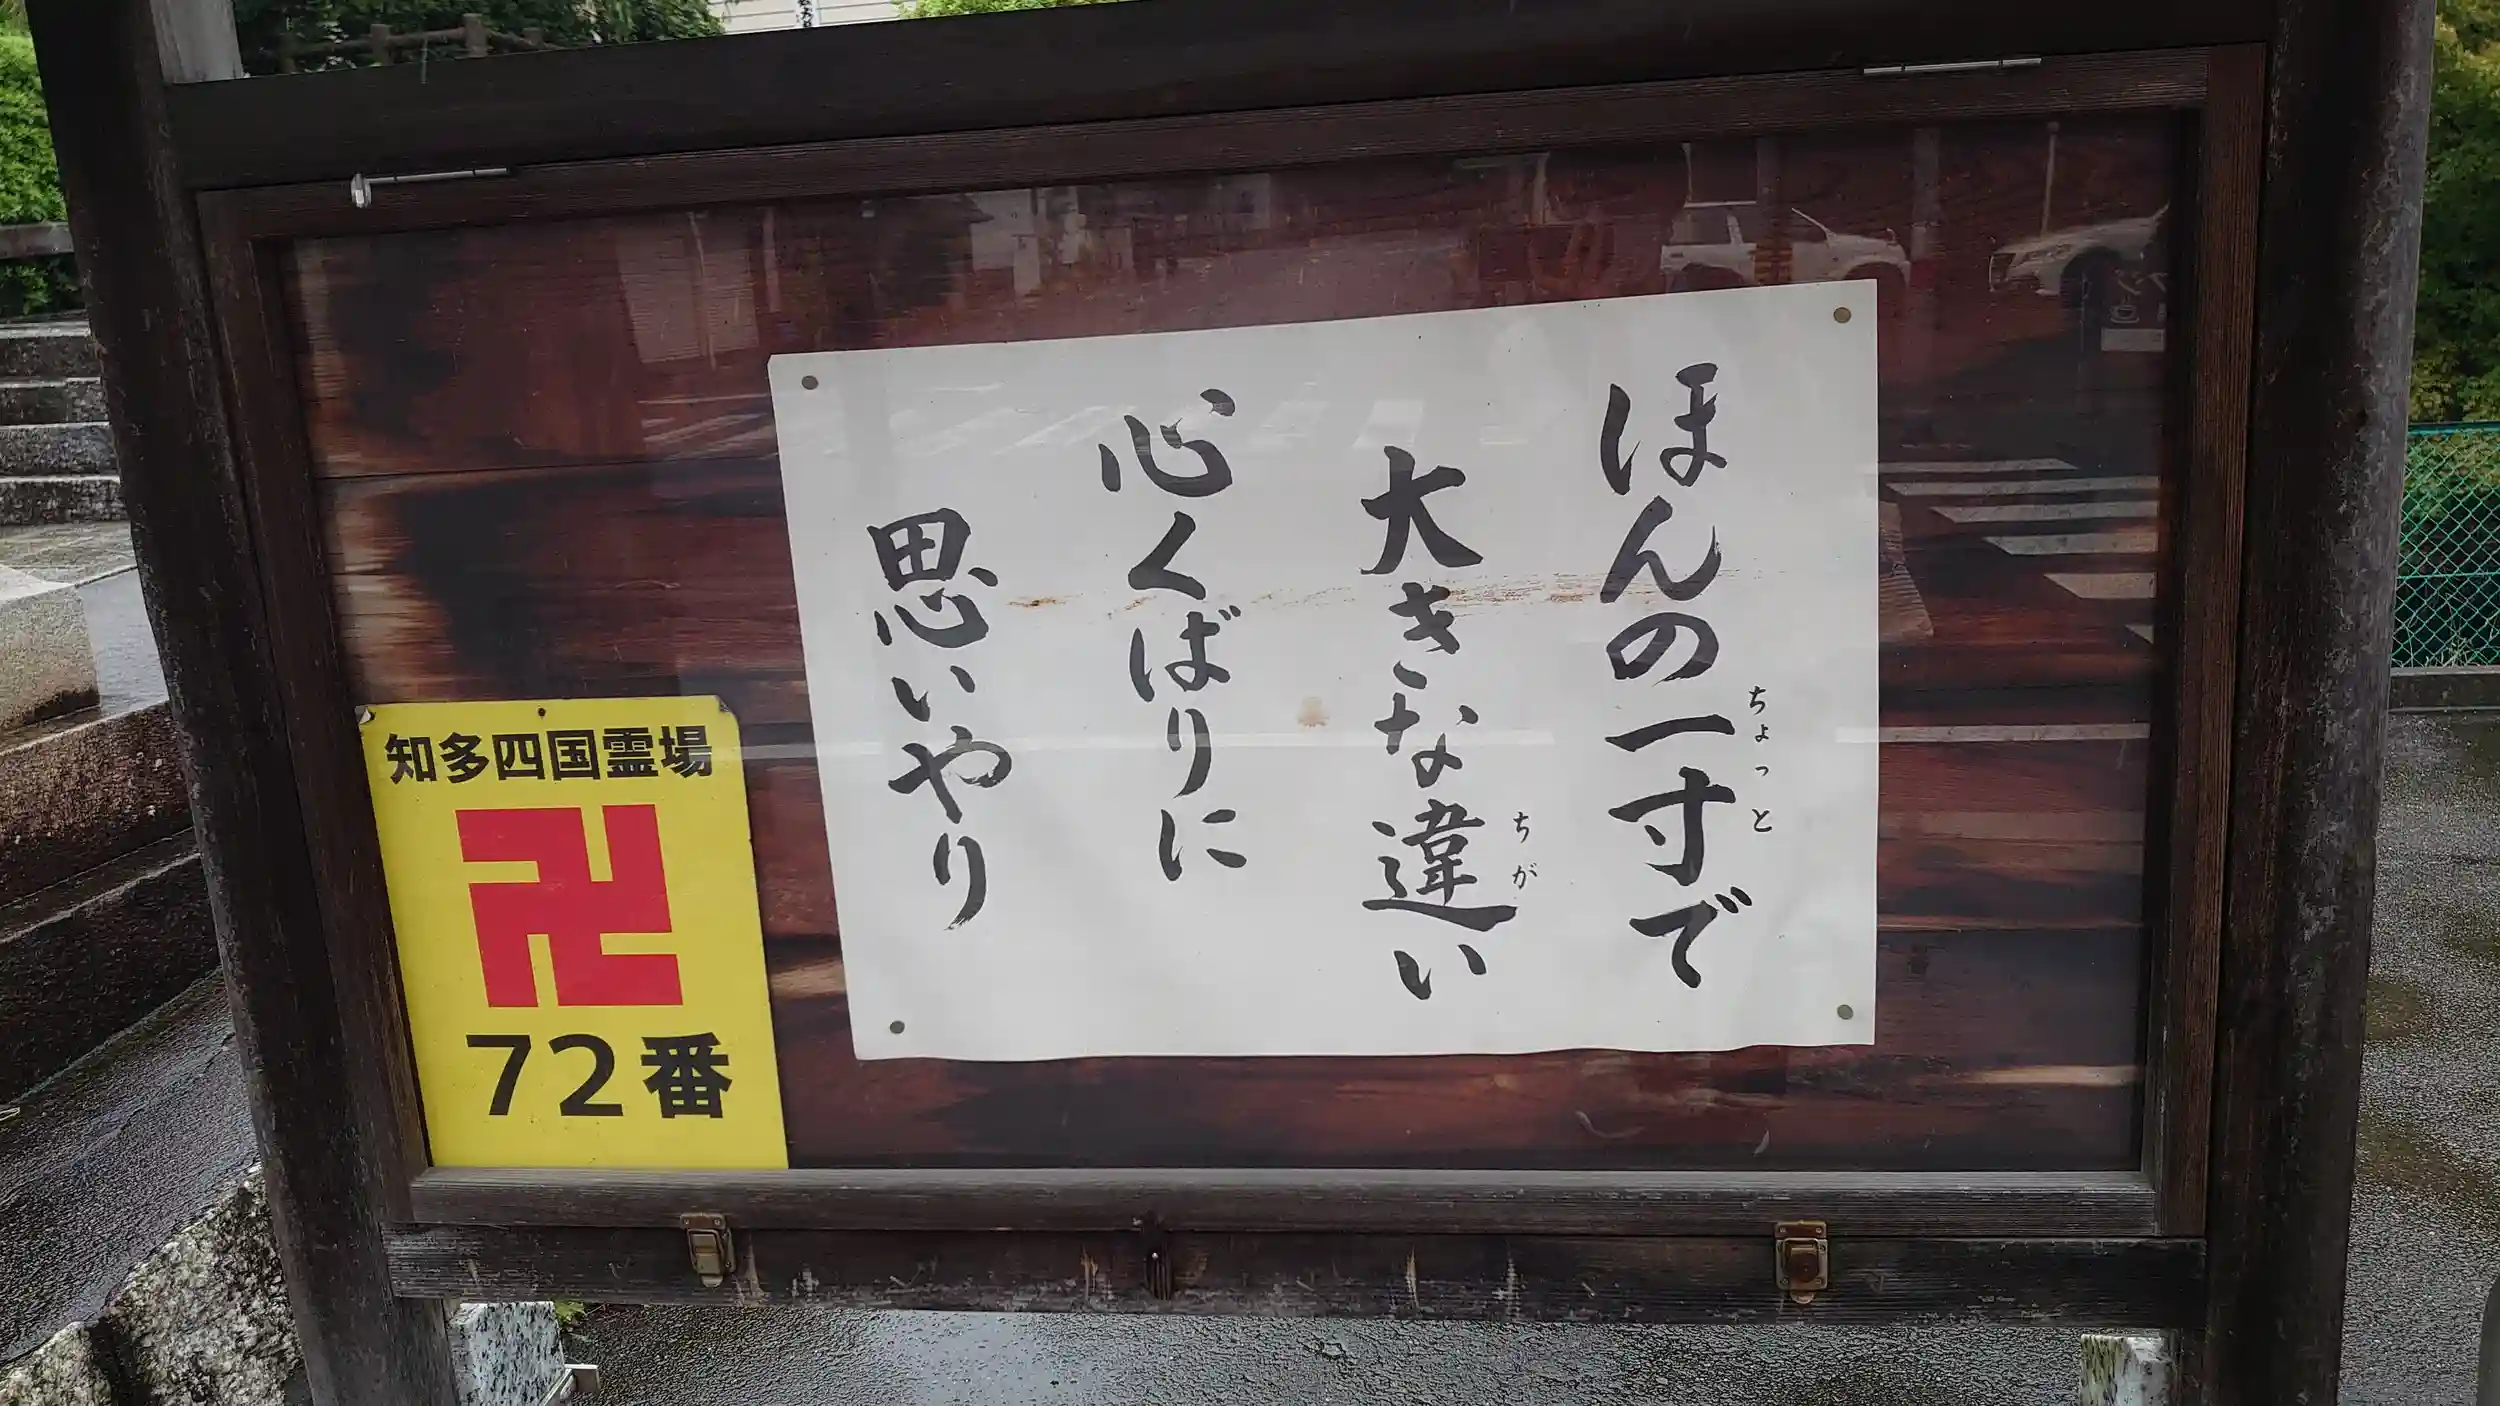 ほんの一寸で
ちょっと
大きな違い
ちが
心くばりに
思いやり
知多四国霊場
卍
72番